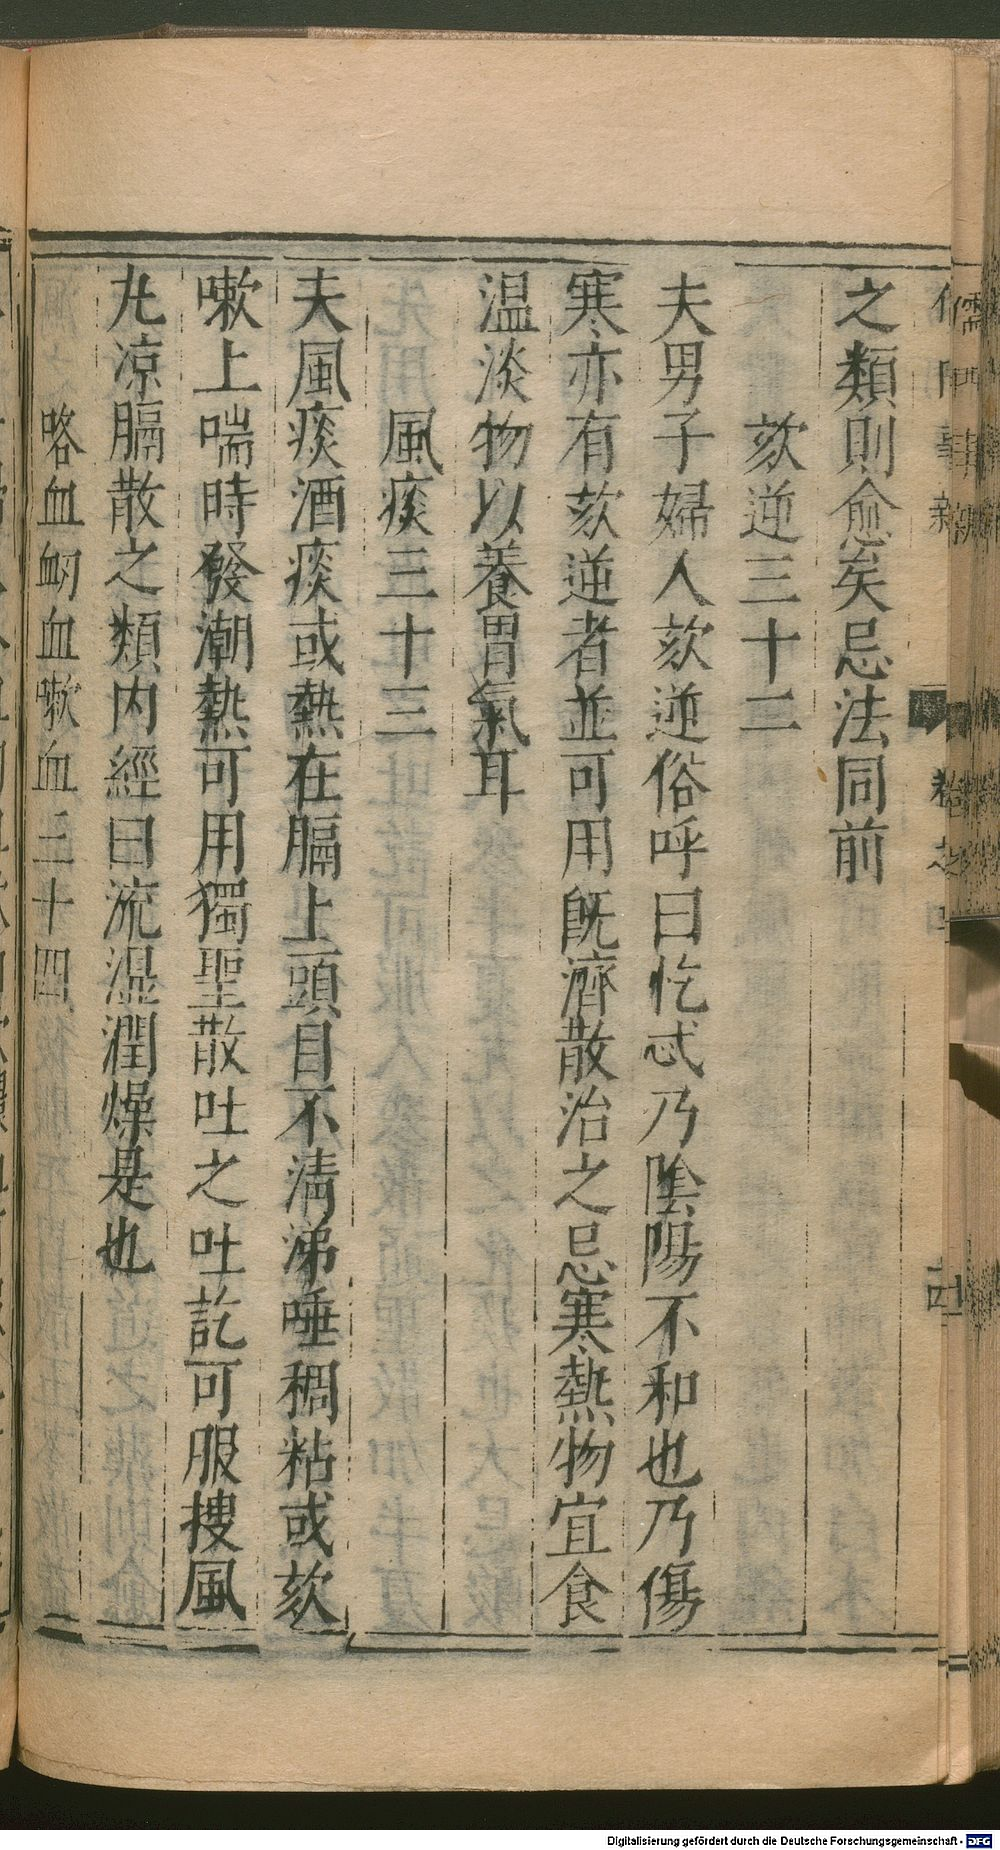 之類則愈矣忌法同前
欬逆三十二
夫男子婦人欬逆俗呼曰忔忒乃陰陽不和也乃傷
寒亦有欬逆者並可用旣濟散治之忌寒熱物宜食
温淡物以養胃氣耳
風痰三十三
夫風痰酒痰或熱在膈上頭目不清涕唾稠粘或欬
嗽上喘時發潮熱可用獨聖散吐之吐訖可服搜風
丸凉膈散之類内經曰流湿潤燥是也
咯血衂血嗽血三十四
Digitalisierung gefördert durch die Deutsche Forschungsgemeinschaft - DFG